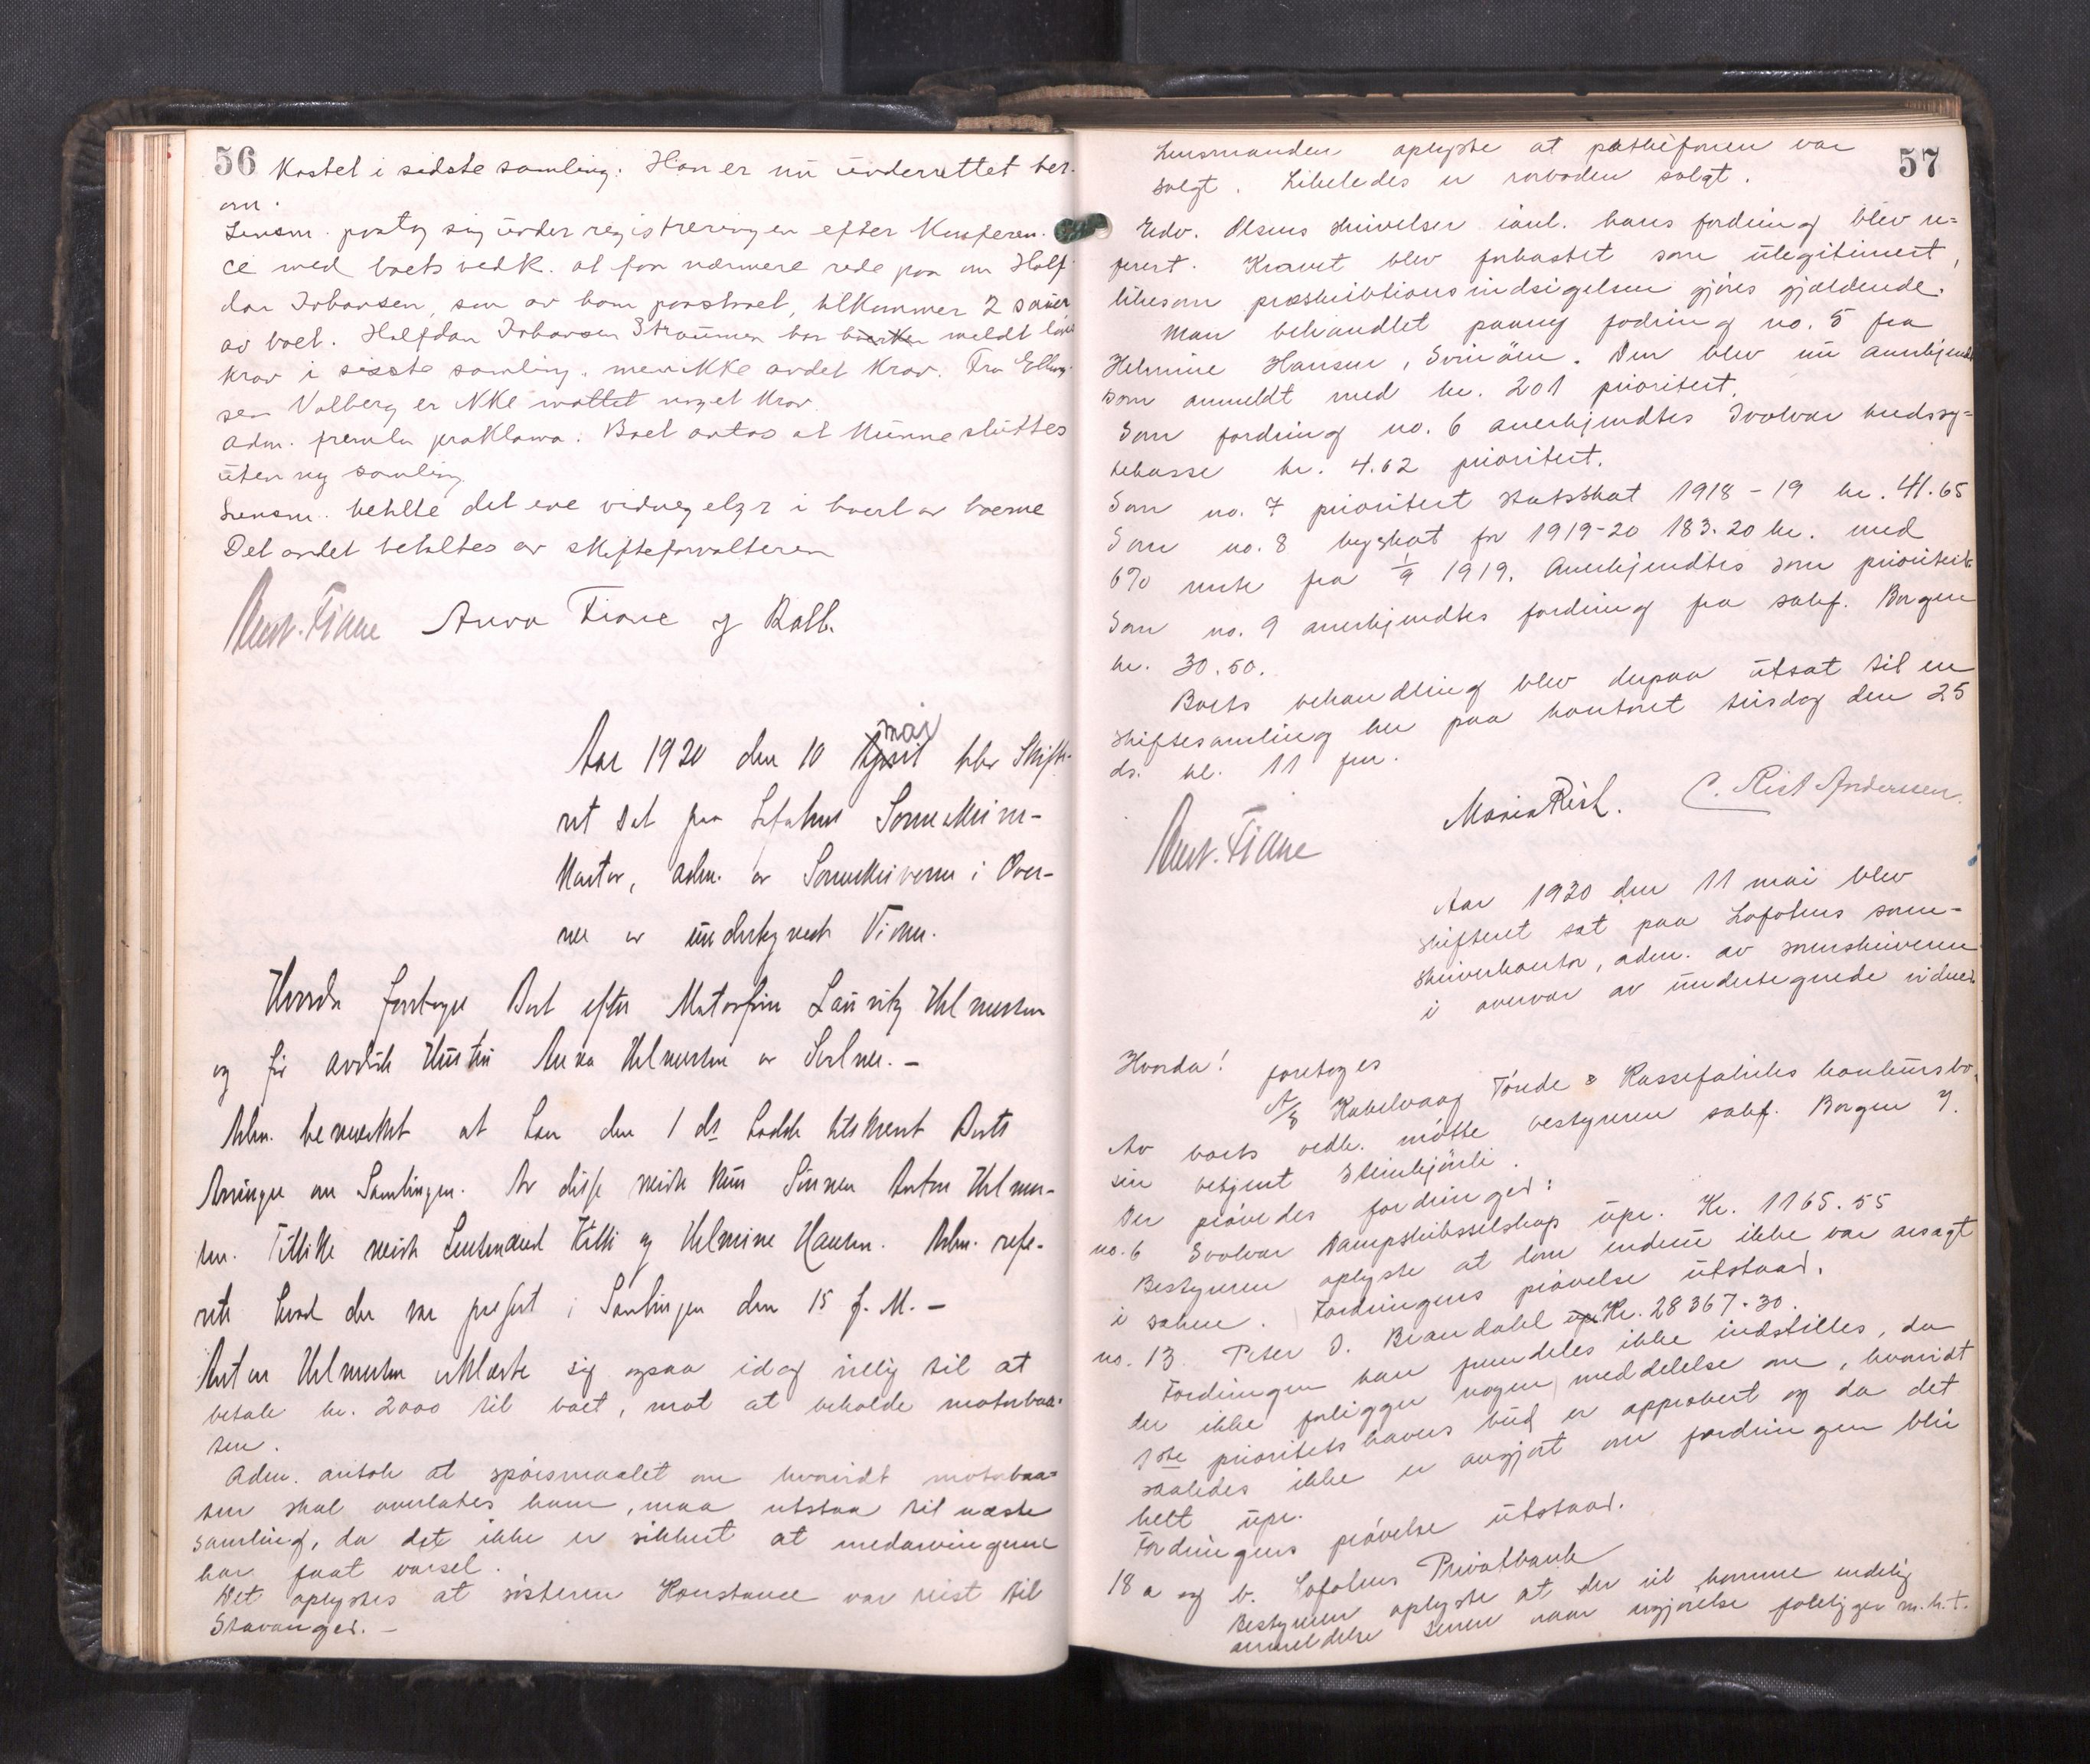 56 kastet i sidste samling. Han er nu underrettet her-
om.
Lensm. paatog sig under registreringen efter konferen-
ce med boets vedk. at faa nærmere rede paa om Half-
dan Johansen, som av ham paastaaet, tilkommer 2 sauer
av boet. Halfdan Johansen Straumen har meldt
krav i sidste samling, men ikke andet krav. Fra Elling-
sen Valberg er ikke mottat noget krav.
Adm. fremla proklama. Boet antas at kunne sluttes
uten ny samling.
Lensm. beholdt det ene vidnegebyr i hvert av boerne
Det andet beholdtes av skifteforvalteren
Aust. Fiane Anna Fiane og Balb.
Aar 1920 den 10 April mai blev Skifte-
ret sat paa Lofotens Sorenskriver-
kontor, adm. av Sorenskriveren i Over-
vær av undertegnede Vidner.
Hvorda foretoges Boet efter Motorfører Lauritz Helmersen
og før avdøde Hustru Anna Helmersen av Svolvær. -
Adm. bemerket at han den 1 ds hadde tilskrevet Boets
Arvinger om Samlingen. Av disse møtte kun Sønnen Anton Helmer-
sen. Tillike møtte Lensmand Killi og Helmine Hansen. Adm. refe-
rerte hvad der var passert i Samlingen den 15 f. M. -
Anton Helmersen erklærte sig ogsaa idag villig til at
betale kr. 2000 til boet, mot at beholde motorbaa-
ten.
Adm. antok at spørsmaalet om hvorvidt motorbaa-
ten skal overlates ham, maa utstaa til næste
samling, da det ikke er sikkert at medarvingerne
har faat varsel.
Det oplystes at søsteren Konstance var reist til
Stavanger. -
57
Lensmanden oplyste at pathefonen var
solgt. Likeledes er rorboden solgt.
Edv. Olsens skrivelser ianl. hans fordring blev re-
ferert. Kravet blev forkastet som ulegitimert,
likesom præskriptionsindsigelsen gjøres gjældende.
Man behandlet paany fodring no. 5 fra
Helmine Hansen, Svinøen. Den blev nu anerkjendt
som anmeldt med kr. 201 prioritert.
Som fordring no. 6 anerkjendtes Svolvær kredssy-
kekasse kr. 4.62 prioritert.
Som no. 7 prioritert statsskat 1918-19 kr. 41.65
Som no. 8 byskat for 1919-20 183.20 kr. med
6% rente fra 1/9 1919. Anerkjendtes som prioritert.
Som no. 9 anerkjendtes fordring fra sakf. Borgen
kr. 30.50.
Boets behandling blev derpaa utsat til en
skiftesamling her paa kontoret tirsdag den 25
ds. kl. 11 fm.
Aust. Fiane Maria Rist. C. Rist Andersen.
Aar 1920 den 11 mai blev
skifteret sat paa Lofotens soren-
skriverkontor, adm. av sorenskriveren
i overvær av undertegnede vidner.
Hvorda! foretoges
A/S Kabelvaag Tønde & Kassefabriks konkursbo.
Av boets vedk. møtte bestyreren sakf. Borgen v.
sin betjent Steinkjønli.
Der prøvedes fordringer:
no. 6 Svolvær Dampskibsselskap upr. Kr. 1165.55
Bestyreren oplyste at dom endnu ikke var avsagt
i saken. Fordringens prøvelse utstaar.
no. 13 Peter D. Brandahl upr Kr. 28367.30.
Fordringen kan fremdeles ikke indstilles, da
der ikke foreligger nogen meddelelse om, hvorvidt
1ste prioritetshavers bud er approbert og da det
saaledes ikke er avgjort om fordringen blir
helt upr.
Fordringens prøvelse utstaar.
18 a og b. Lofotens Privatbank
Bestyreren oplyste at der vil komme endelig
anmeldelse senere naar avgjørelse foreligger m.h.t.